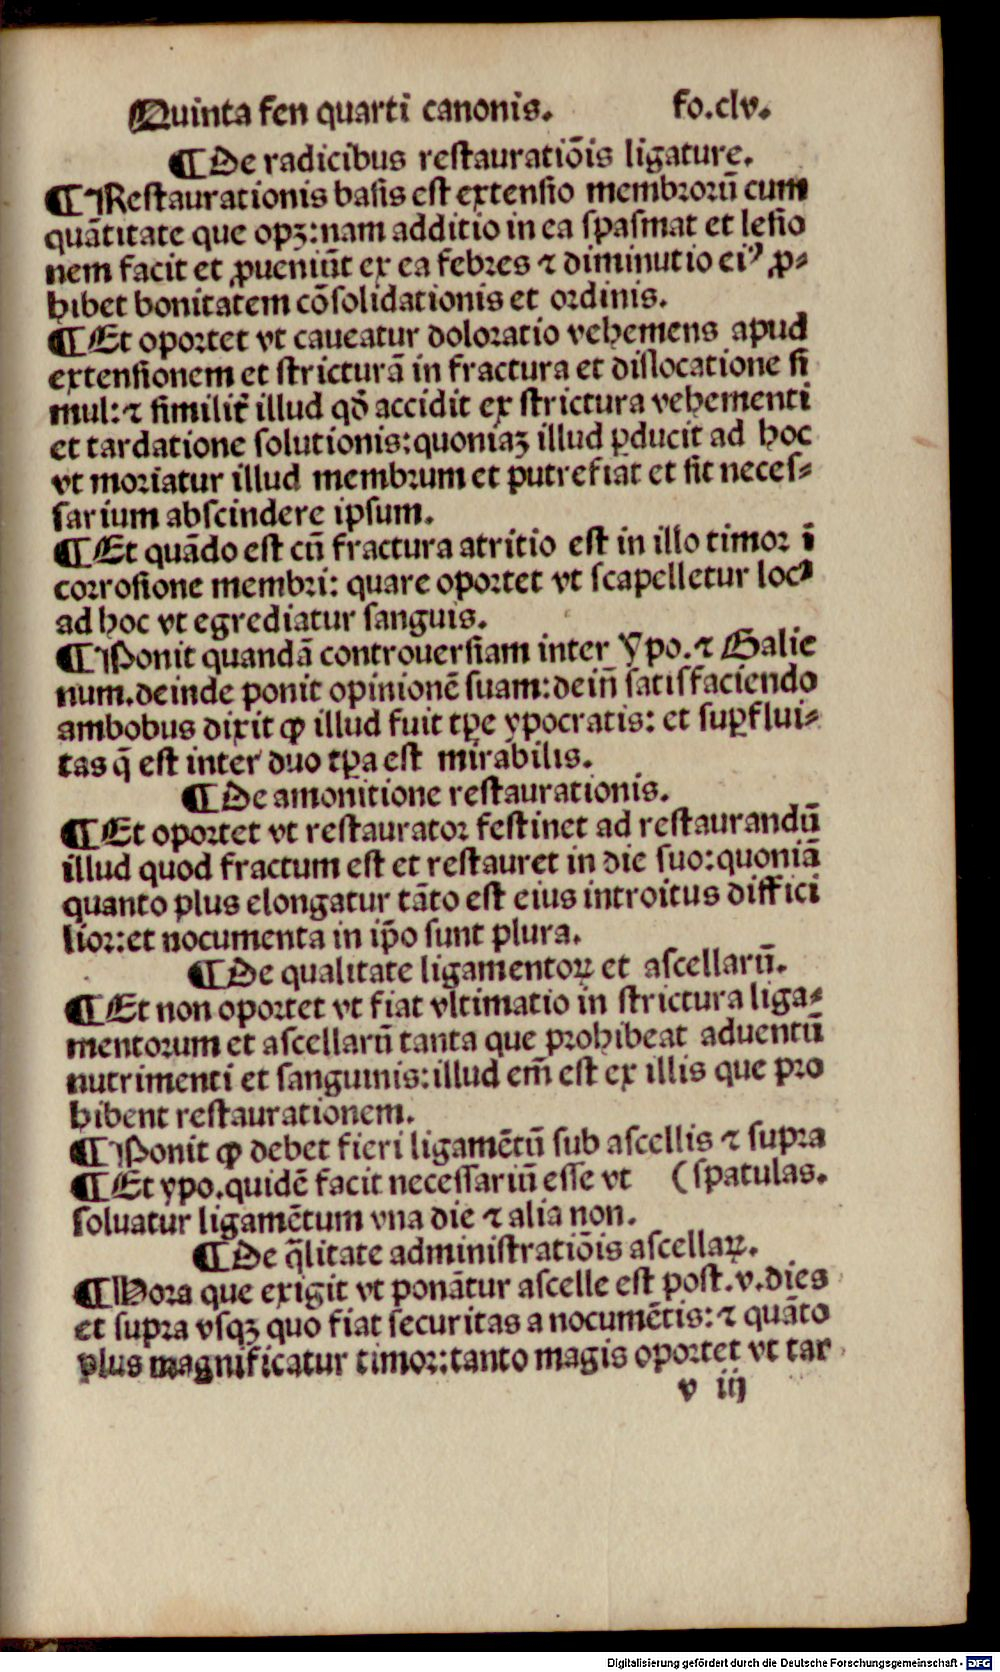 Quinta fen quarti canonis. fo.clv.
¶ De radicibus restauratiõis ligature.
¶ Restaurationis basis est extensio membrorũ cum
quãtitate que opꝫ: nam additio in ea spasmat et lesio
nem facit et ꝓueniũt ex ea febres ⁊ diminutio eiꝰ ꝓ-
hibet bonitatem cõsolidationis et ordinis.
¶ Et oportet vt caueatur doloratio vehemens apud
extensionem et stricturã in fractura et dislocatione si
mul: ⁊ similit̃ illud qđ accidit ex strictura vehementi
et tardatione solutionis: quoniaꝫ illud ꝑducit ad hoc
vt moriatur illud membrum et putrefiat et sit neces-
sarium abscindere ipsum.
¶ Et quãdo est cũ fractura atritio est in illo timor ĩ
corrosione membri: quare oportet vt scapelletur locꝰ
ad hoc vt egrediatur sanguis.
¶ Ponit quandã controuersiam inter Ypo. ⁊ Galie
num. deinde ponit opinionẽ suam: deiñ satisfaciendo
ambobus dixit ꝙ illud fuit tꝑe ypocratis: et suꝑflui-
tas q̃ est inter duo tꝑa est mirabilis.
¶ De amonitione restaurationis.
¶ Et oportet vt restaurator festinet ad restaurandũ
illud quod fractum est et restauret in die suo: quoniã
quanto plus elongatur tãto est eius introitus diffici
lior: et nocumenta in ip̃o sunt plura.
¶ De qualitate ligamentoꝝ et ascellarũ.
¶ Et non oportet vt fiat vltimatio in strictura liga-
mentorum et ascellarũ tanta que prohibeat aduentũ
nutrimenti et sanguinis: illud em̃ est ex illis que pro
hibent restaurationem.
¶ Ponit ꝙ debet fieri ligamẽtũ sub ascellis ⁊ supra
¶ Et ypo. quidẽ facit necessariũ esse vt (spatulas.
soluatur ligamẽtum vna die ⁊ alia non.
¶ De q̃litate administratiõis ascellaꝝ.
¶ Hora que exigit vt ponãtur ascelle est post .v. dies
et supra vsqꝫ quo fiat securitas a nocumẽtis: ⁊ quãto
plus magnificatur timor: tanto magis oportet vt tar
v iij
Digitalisierung gefördert durch die Deutsche Forschungsgemeinschaft - DFG